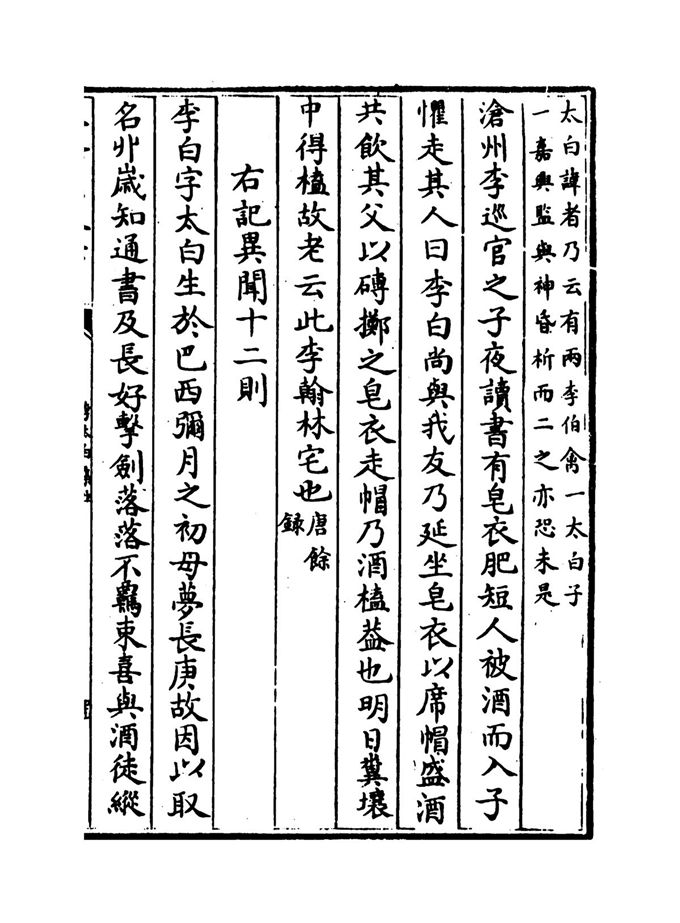 太白諱者乃云有兩李伯禽一太白子
一嘉興監與神昏析而二之亦恐未是
滄州李巡官之子夜讀書有皂衣肥短人被酒而入子
懼走其人曰李白尚與我友乃延坐皂衣以席帽盛酒
共飲其父以磚擲之皂衣走帽乃酒榼葢也明日糞壤
中得榼故老云此李翰林宅也唐餘
錄
右記異聞十二則
李白字太白生於巴西彌月之初母夢長庚故因以取
名丱歲知通書及長好擊劍落落不羈東喜與酒徒縱